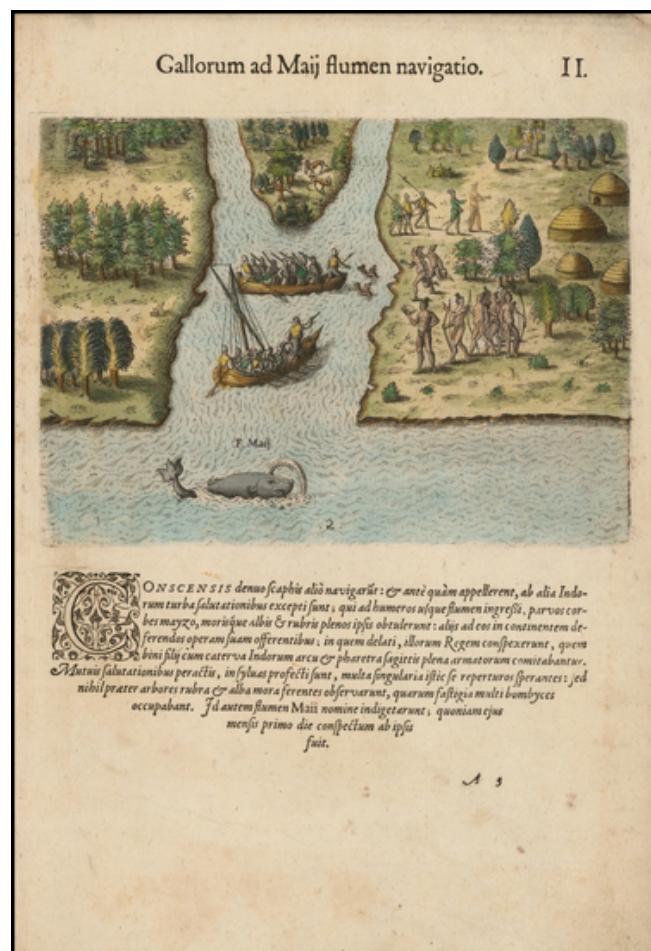 Gallorum ad Maij flumen navigatio. II.
F. Maij
2
CONSCENSIS denuo scaphis aliò navigarũt: & antè quàm appellerent, ab alia Indo-
rum turba salutationibus excepti sunt; qui ad humeros usque flumen ingressi, parvos cor-
bes mayzo, morisque albis & rubris plenos ipsis obtulerunt: alijs ad eos in continentem de-
ferendos operam suam offerentibus; in quem delati, illorum Regem conspexerunt, quem
bini filij cum caterva Indorum arcu & pharetra sagittis plena armatorum comitabantur.
Mutuis salutationibus peractis, in sylvas profecti sunt, multa singularia istic se reperturos sperantes: sed
nihil præter arbores rubra & alba mora ferentes observarunt, quarum fastigia multi bombyces
occupabant. Id autem flumen Maii nomine indigetarunt; quoniam ejus
mensis primo die conspectum ab ipsis
fuit.
A 3